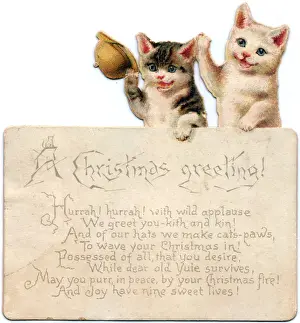 A Christmas greeting!
Hurrah! hurrah! with wild applause
We greet you-kith and kin!
And of our hats we make cats-paws,
To wave your Christmas in!
Possessed of all, that you desire,
While dear old Yule survives,
May you purr, in peace, by your Christmas fire!
And Joy have nine sweet lives!